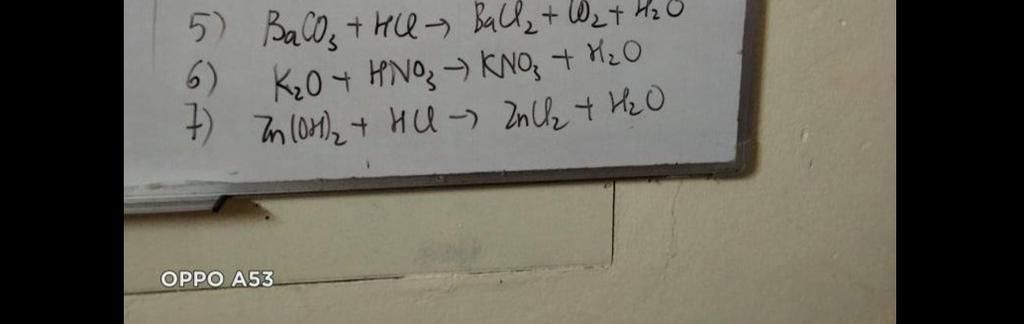 5) BaCO₃ + HCl → BaCl₂ + CO₂ + H₂O
6) K₂O + HNO₃ → KNO₃ + H₂O
7) Zn(OH)₂ + HCl → ZnCl₂ + H₂O
OPPO A53